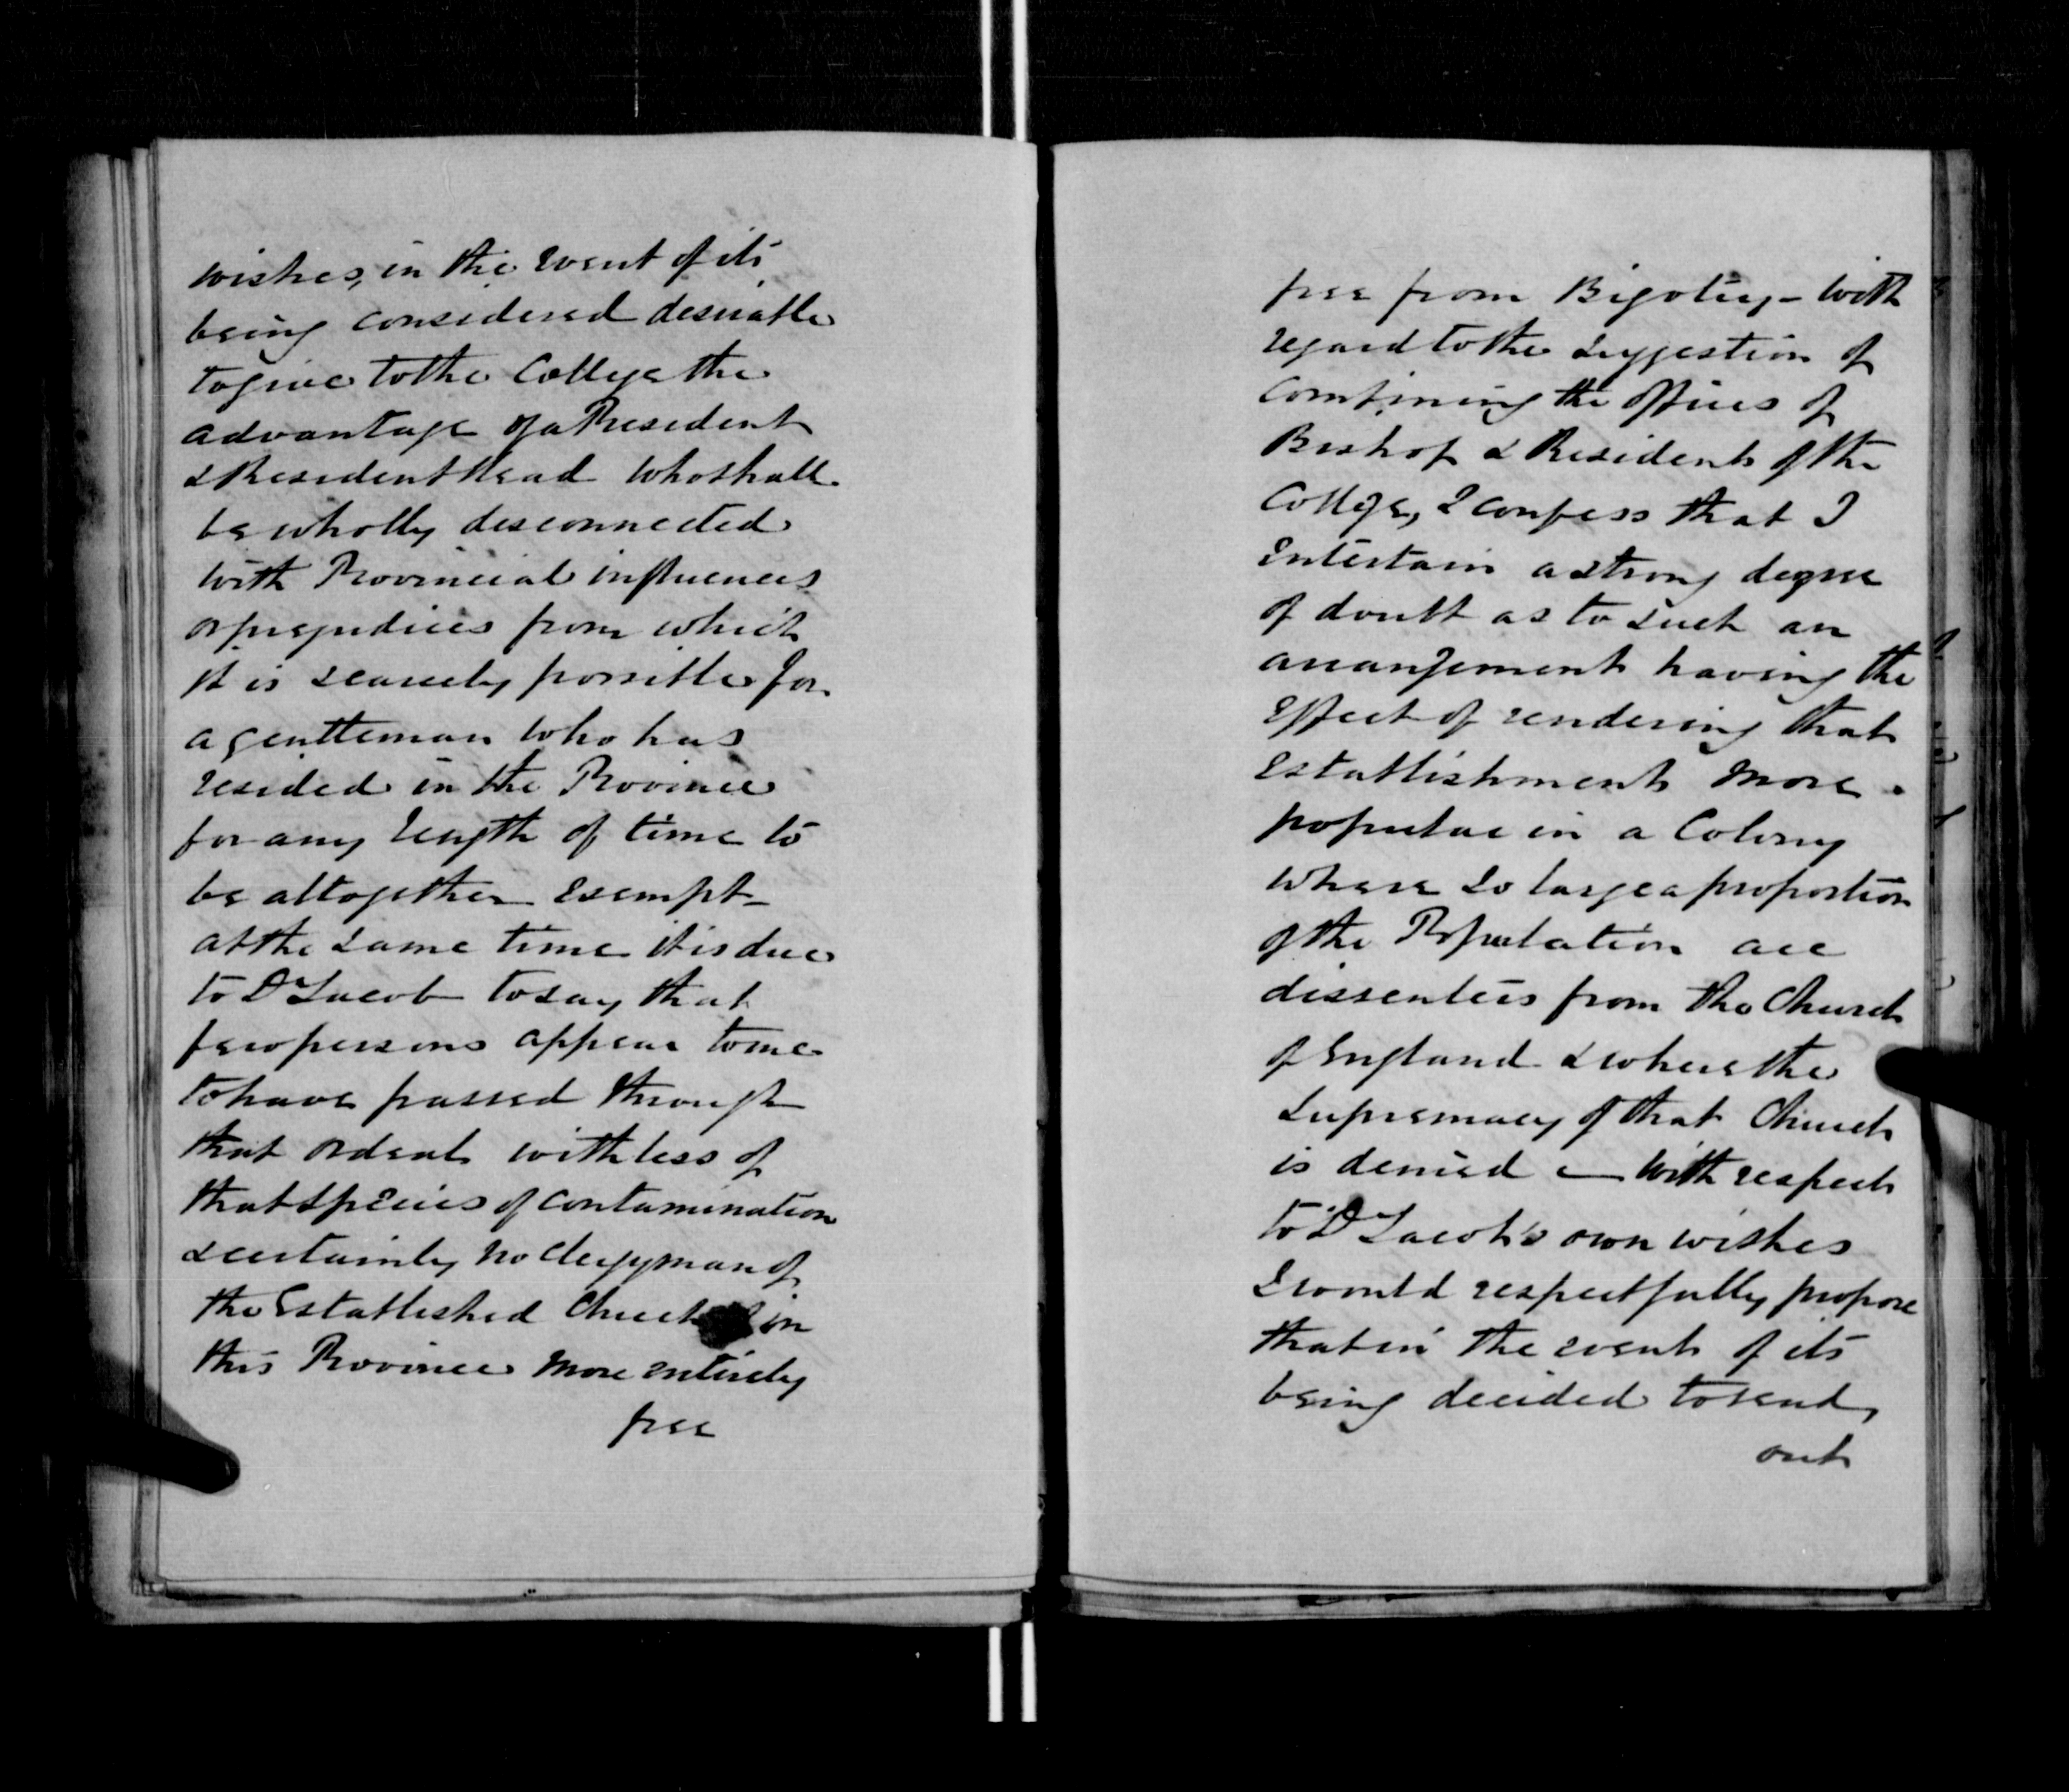 wishes, in the event of its
being considered desirable
to give to the College the
advantage of a President
& Resident Head who shall
be wholly disconnected
with Provincial influences
or prejudices from which
it is scarcely possible for
a gentleman who has
resided in the Province
for any length of time to
be altogether exempt -
at the same time it is due
to Dr Jacob to say that
few persons appear to me
to have passed through
that ordeal with less of
that species of contamination
& certainly no clergyman of
the Established Church in
this Province more entirely
free
free from Bigotry - with
regard to the suggestion of
combining the offices of
Bishop & President of the
College, I confess that I
entertain a strong degree
of doubt as to such an
arrangement having the
effect of rendering that
establishment more
popular in a Colony
where so large a proportion
of the Population are
dissenters from the Church
of England & where the
supremacy of that Church
is denied — with respect
to Dr Jacob's own wishes
I would respectfully propose
that in the event of its
being decided to send
out